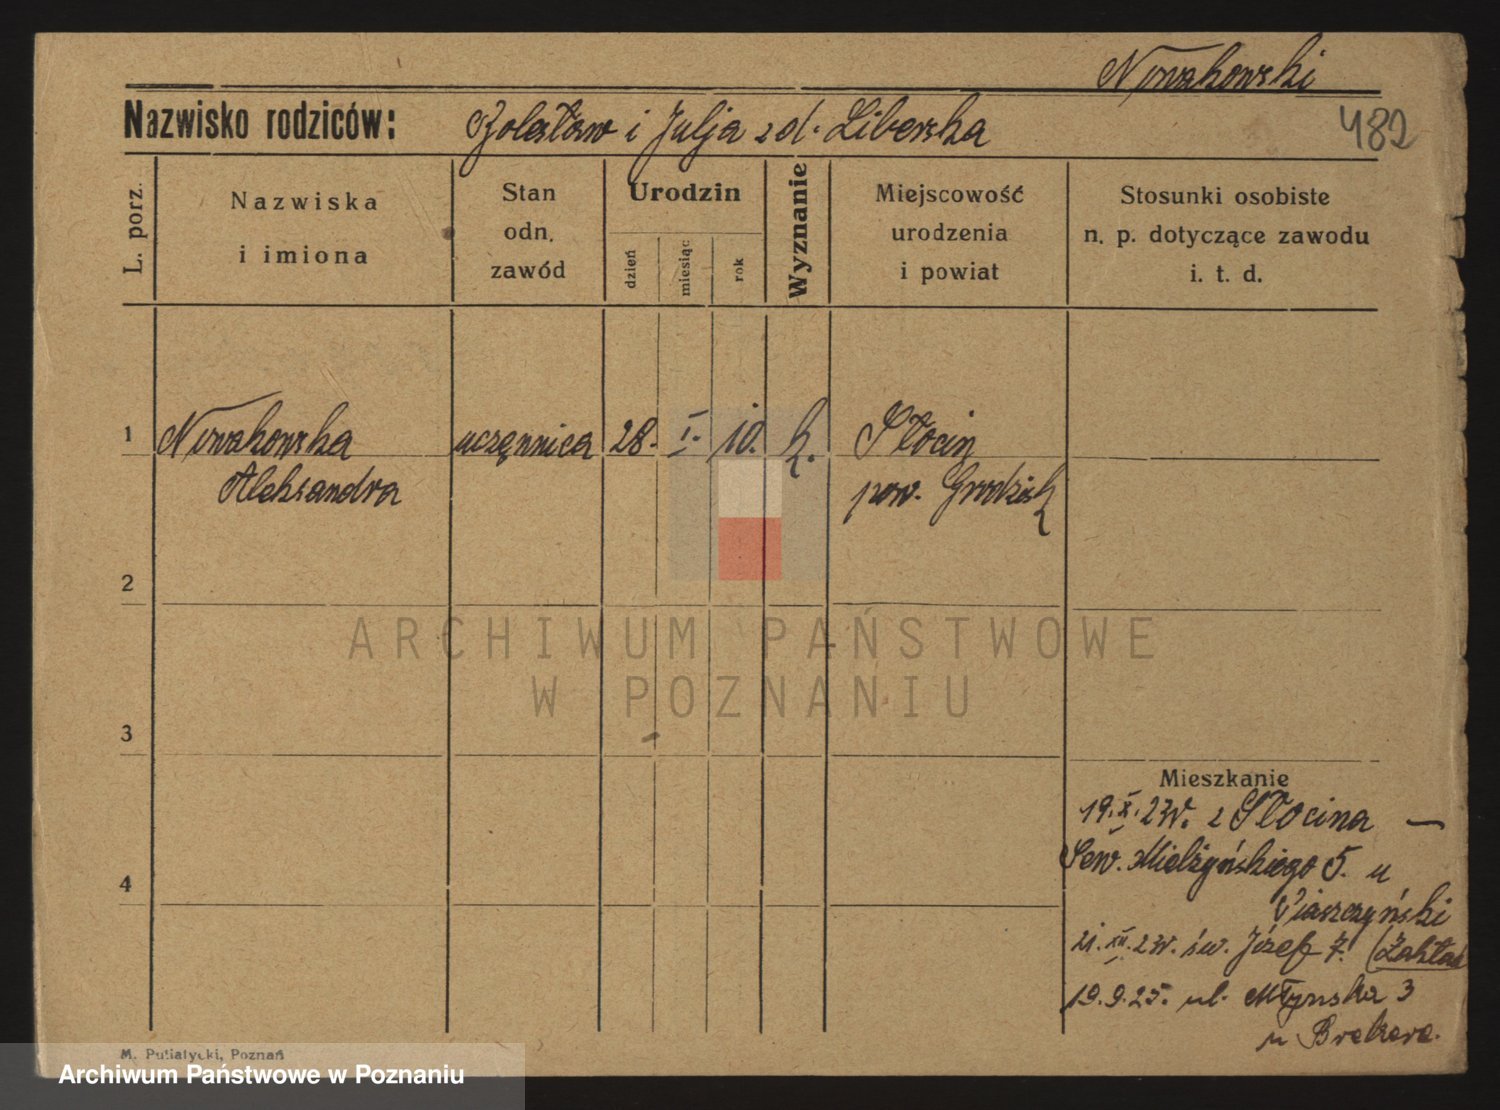 Nowakowski
Nazwisko rodziców: Bolesław i Julja z d. Liberska
482
L. porz.
Nazwiska
i imiona
Stan
odn.
zawód
Urodzin
dzień
miesiąc
rok
Wyznanie
Miejscowość
urodzenia
i powiat
Stosunki osobiste
n. p. dotyczące zawodu
i. t. d.
1 Nowakowska uczennica 28. I. 10. k. Słocin
Aleksandra pow. Grodzisk
2
ARCHIWUM PAŃSTWOWE
W POZNANIU
3
Mieszkanie
19.X.23r. z Słocina —
Sew. Mielżyńskiego 5. u
4
Piaszczyński
21.XII.23r. św. Józef 7. (Zakład
19.9.25. ul. Młyńska 3
u Brekere.
M. Putiatycki, Poznań
Archiwum Państwowe w Poznaniu